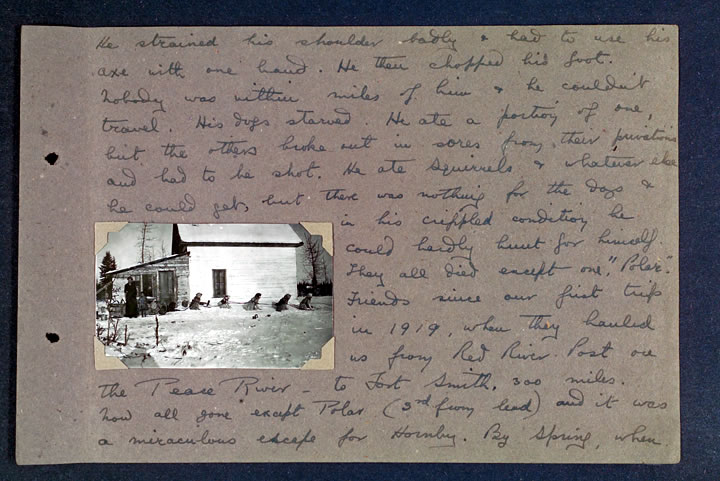 He strained his shoulder badly & had to use his
axe with one hand. He then chopped his foot.
Nobody was within miles of him & he couldn't
travel. His dogs starved. He ate a portion of one,
but the others broke out in sores from their privations
and had to be shot. He ate squirrels & whatever else
he could get, but there was nothing for the dogs &
in his crippled condition he
could hardly hunt for himself.
They all died except one, "Polar".
Friends since our first trip
in 1919, when they hauled
us from Red River Post on
the Peace River – to Fort Smith, 300 miles.
Now all gone except Polar (3rd from lead) and it was
a miraculous escape for Hornby. By Spring, when